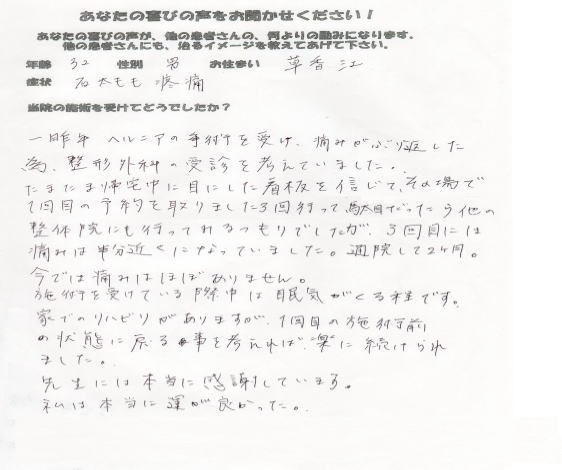 あなたの喜びの声をお聞かせください！
あなたの喜びの声が、他の患者さんの、何よりの励みになります。
他の患者さんにも、治るイメージを教えてあげて下さい。
年齢 32 性別 男 お住まい 草香江
症状 右太もも 疼痛
当院の施術を受けてどうでしたか？
一昨年 ヘルニアの手術を受け、痛みがぶり返した
為、整形外科の受診を考えていました。
たまたま帰宅中に目にした看板を信じて、その場で
1回目の予約を取りました3回行って駄目だったら他の
整体院にも行ってみるつもりでしたが、3回目には
痛みは半分近くになっていました。通院して2ヶ月。
今では痛みはほぼありません。
施術を受けている際中は眠気がくる程です。
家でのリハビリがありますが、1回目の施術前
の状態に戻る事を考えれば、楽に続けられ
ました。
先生には本当に感謝しています。
私は本当に運が良かった。